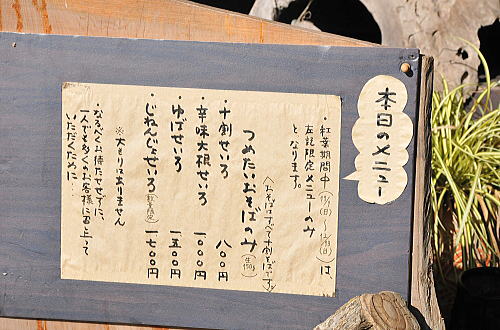 本日のメニュー
・紅葉期間中(11/1(日)~12/13(日))は、
左記限定メニューのみ
となります。
(おそばはすべて十割そばです。)
つめたいおそばのみ
十割せいろ 八〇〇円
辛味大根せいろ 一〇〇〇円
ゆばせいろ 一一五〇円
じねんじょせいろ 一七〇〇円
※大もりはありません
・なるべくお待たせせずに、
一人でも多くのお客様に召上って
いただくために…